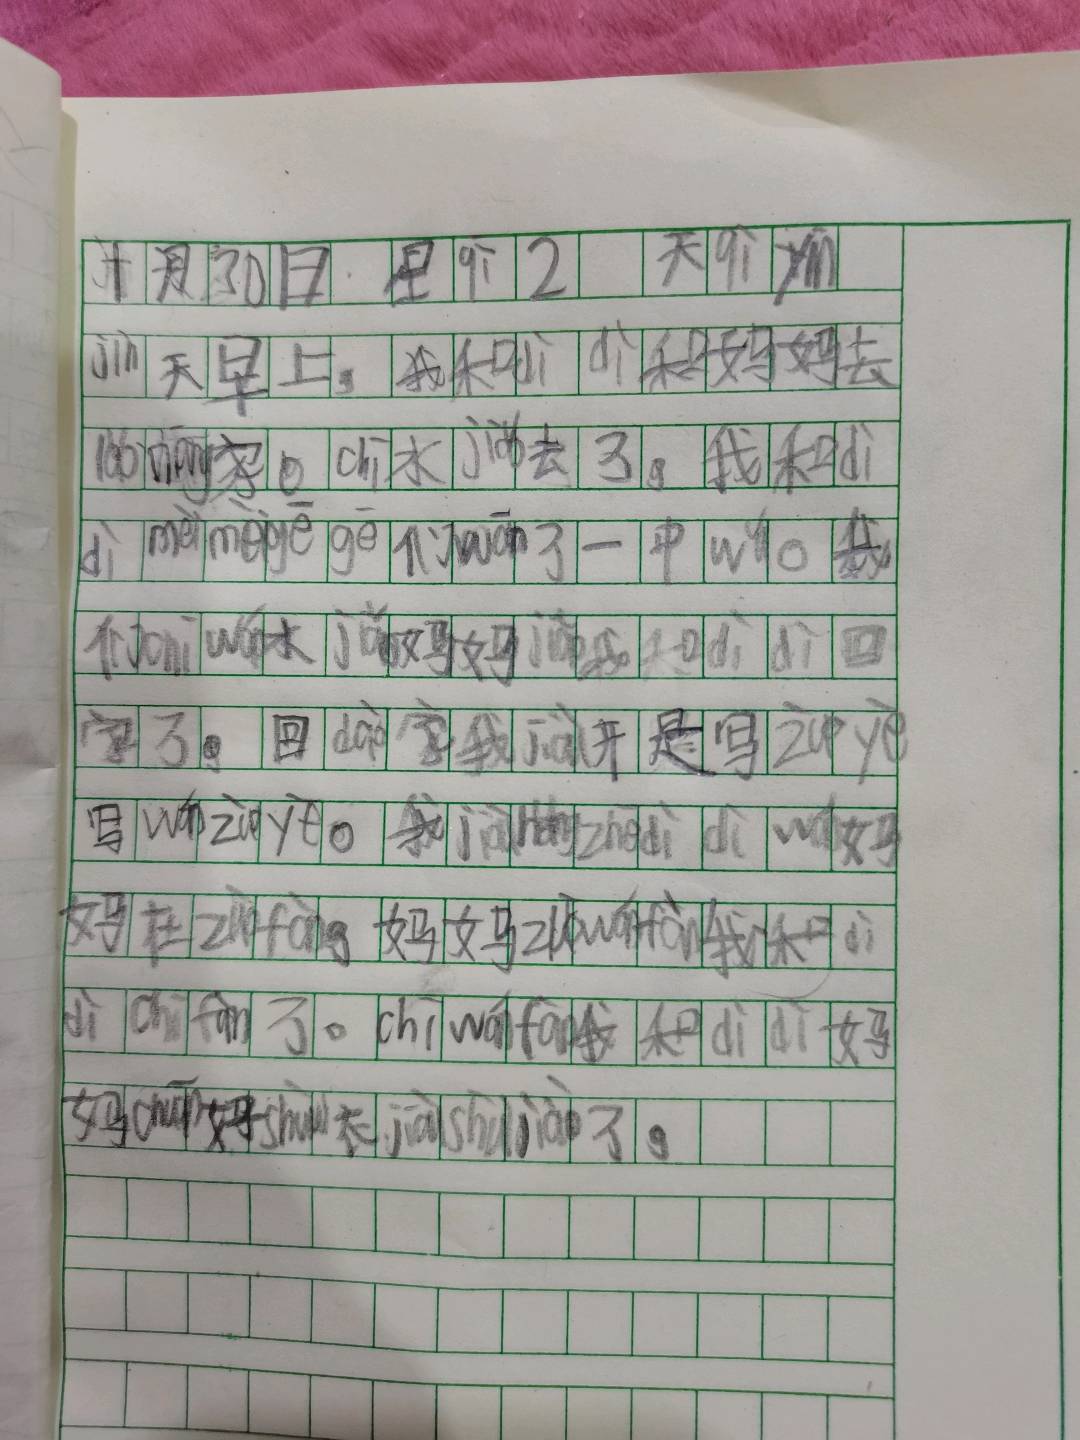 十月30日 星qī2 天qì yīn
jīn天早上。我和dì dì和妈妈去
lǎo niáng家。chī水jiǎo去了。我和dì
dì mèi mèi gē gē们wán了一中wǔ。我
们chī wán水jiǎo妈妈jiào我和dì dì回
家了。回dào家我jiù开是写zuò yè
写wán zuò yè。我jiù péi zhe dì dì wán妈
妈在zuò fàn。妈妈zuò wán fàn我和dì
dì chī fàn了。chī wán fàn我和dì dì妈
妈chuān好shuì衣jiù shuì jiào了。